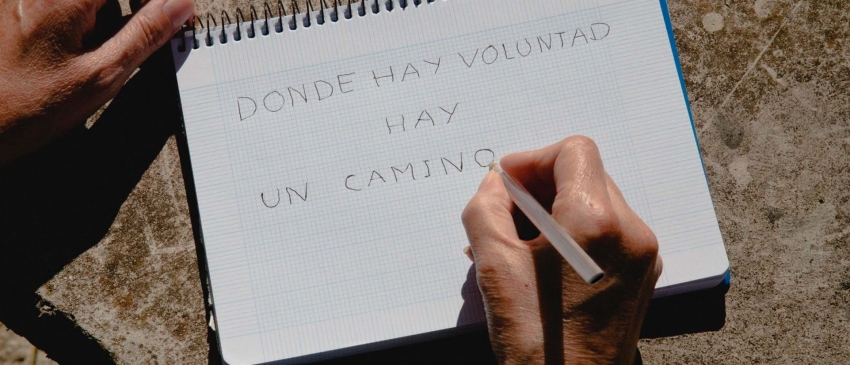 DONDE HAY VOLUNTAD
HAY
UN CAMINO